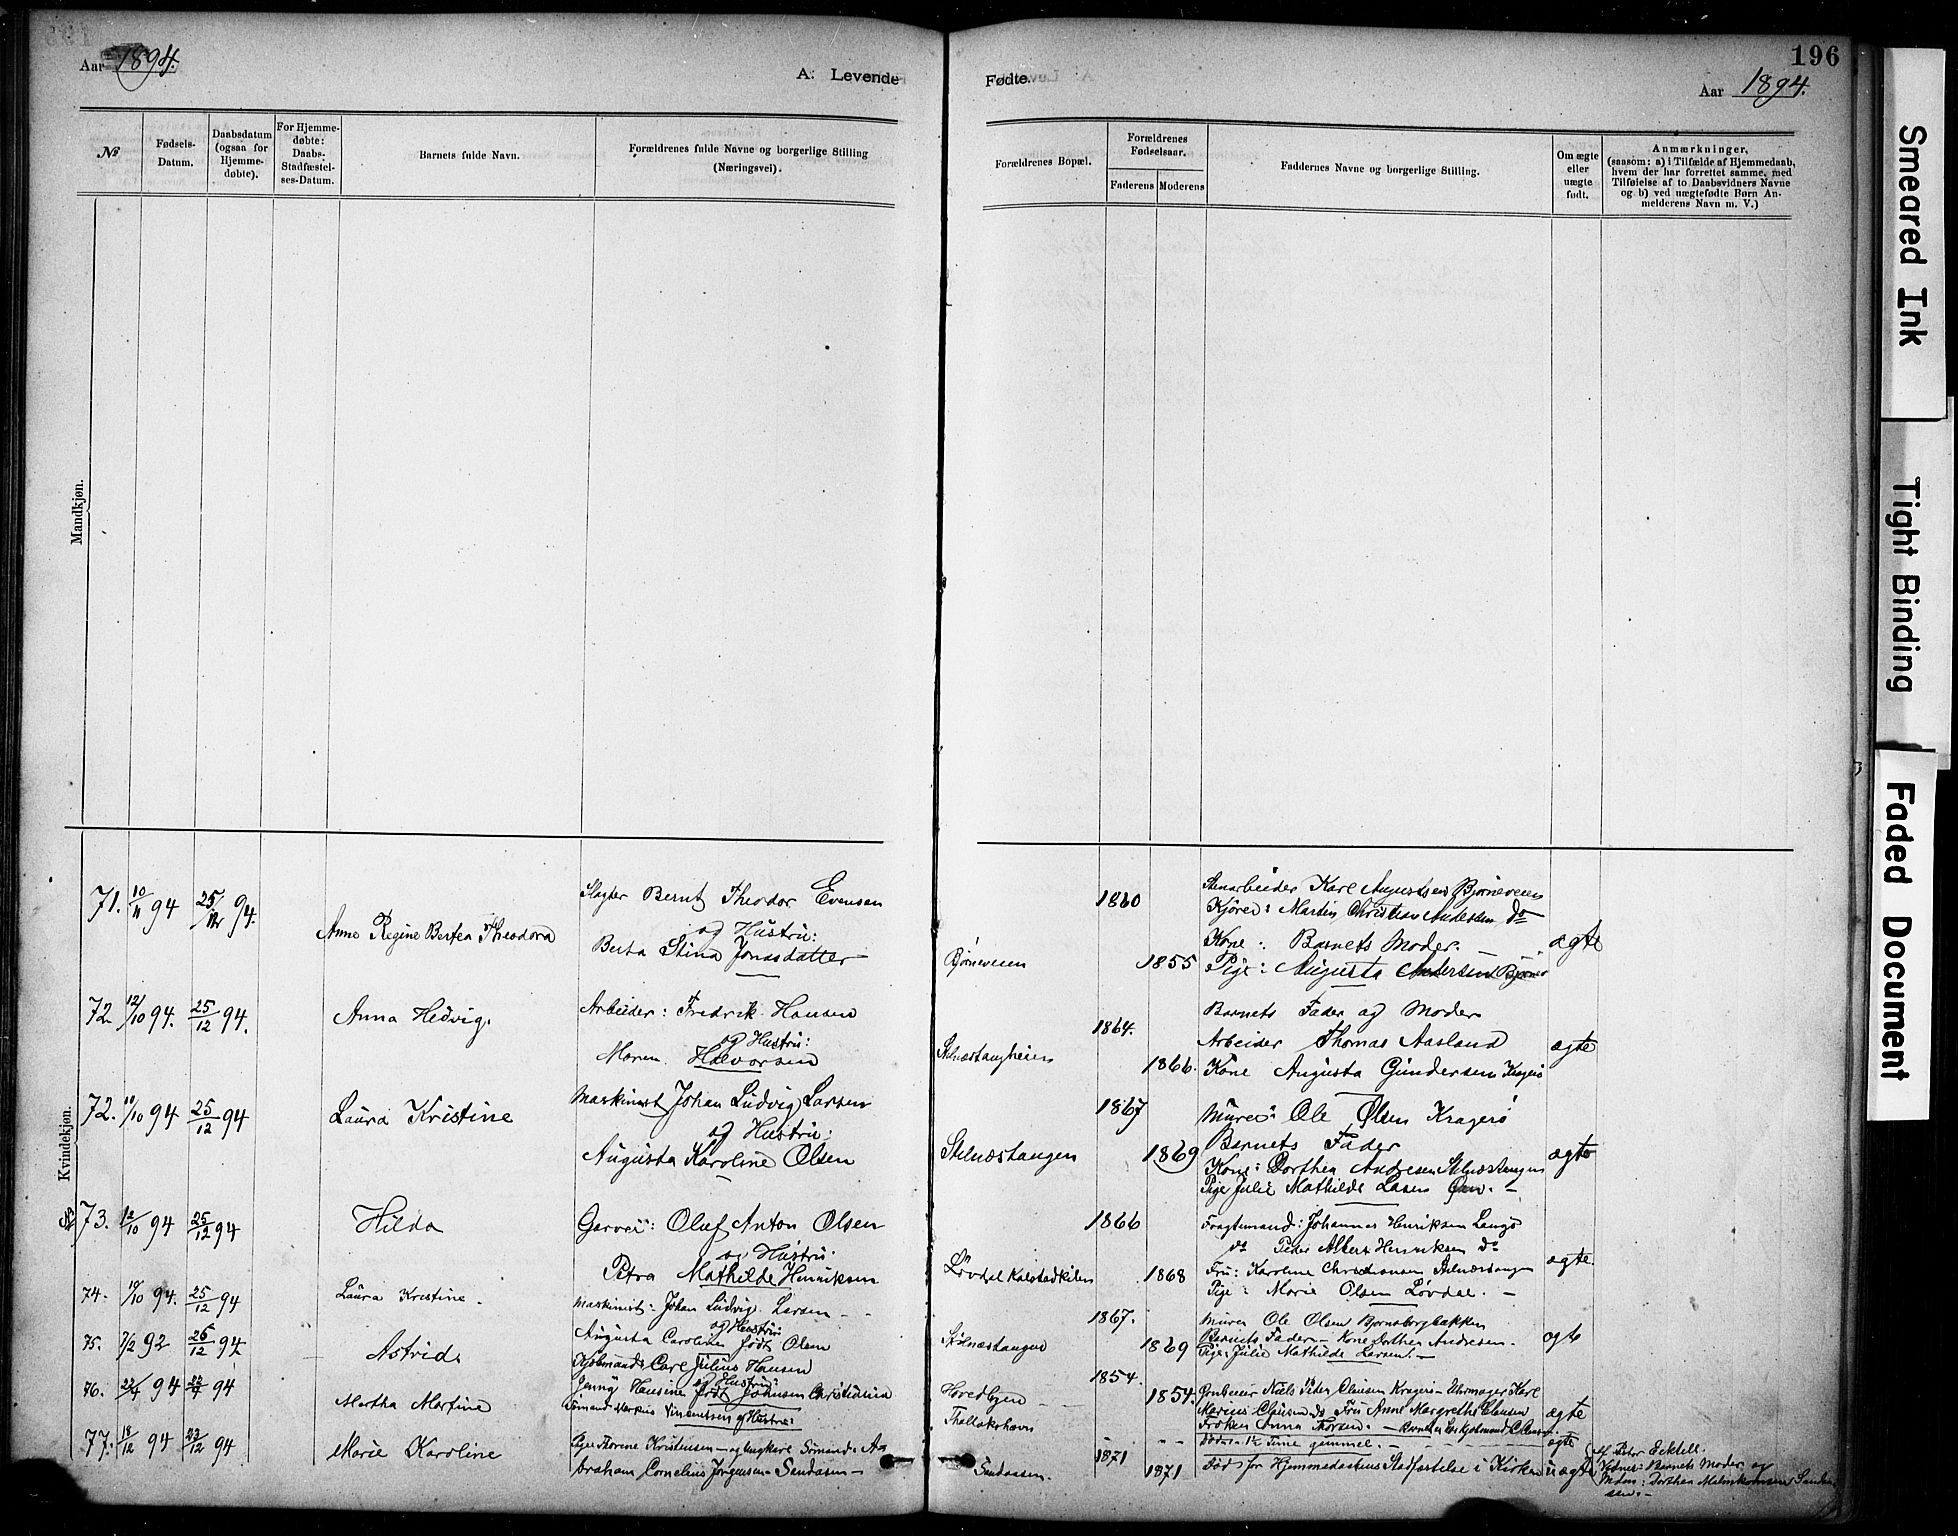 Aar 1894.
A. Levende
Fødte.
196
Aar 1894.
No
Fødsels-Datum.
Daabsdatum (ogsaa for Hjemmedøbte).
For Hjemmedøbte: Daabs-Stadfæstelses-Datum.
Barnets fulde Navn.
Forældrenes fulde Navne og borgerlige Stilling (Næringsvei).
Forældrenes Bopæl.
Forældrenes Fødselsaar.
Faderens
Moderens
Faddernes Navne og borgerlige Stilling.
Om ægte eller uægte født.
Anmærkninger,
(saasom: a) i Tilfælde af Hjemmedaab,
hvem der har forrettet samme, med
Tilføielse af to Daabsvidners Navne
og b) ved uægtefødte Børn Anmelderens Navn m. V.)
Mandkjøn.
Kvindekjøn.
71. 10/11 94 94.
Anne Regine Bertea Theodora
Slagter Bernt Theodor Evensen
og Hustru:
Berta Stina Jonasdatter
Bjørneveien
1860
1855
Stenarbeider Karl Augustsen Bjørneveien
Kjører: Martin Christian Andersen Do
Kone: Barnets Moder. —
Pige: Augusta Andersen
ægte
72. 12/10 94. 25/12 94.
Anna Hedvig.
Arbeider: Fredrik Hansen
og Hustru:
Maren Halvorsen
1864.
1866.
Barnets Fader og Moder
Arbeider Thomas Aasland
Kone Augusta Gundersen Kragerø
ægte
72. 10/10 94 25/12 94
Laura Kristine
Maskinist Johan Ludvig Larsen
og Hustru:
Augusta Karoline Olsen
Stilnæstangen
1867
1869
Murer: Ole Olsen Kragerø
Barnets Fader
Kone: Dorthea Andresen Stilnæstangen
Pige Julie Mathilde Larsen
ægte
73. 12/10 94 25/12 94
Hilda
Garver: Oluf Anton Olsen
og Hustru:
Petra Mathilde Henriksen
Løvdal Kalstadkilen
1866
1868
Fragtemand: Johannes Henriksen Langø
do Peder Albert Henriksen do
Fru: Karoline Christiansen Stilnæstangen
Pige: Marie Olsen Løvdal. —
ægte.
74. 10/10 94. 25/12 94
Laura Kristine.
Maskinist: Johan Ludvig Larsen —
og Hustru
Augusta Caroline født Olsen
Stilnæstangen
1867.
1869
Murer Ole Olsen Bjørnsborgbakken
Barnets Fader — Kone Dorthea Andresen.
Pige: Julie Mathilde Larsen. —
ægte
75. 7/2 92 26/12 94.
Astrid.
Kjøbmand Carl Julius Hansen
og Hustru:
Jenny Hansine født Johnsen Christiania
Hovedbyen
1854.
1854.
Niels Peder Clausen Kragerø — Uhrmager Karl
Marius Clausen do Fru Anne Margrethe Clausen
Frøken Anna Thorsen. —
ægte
76. 94 94
Martha Martine
Sømand Markus Vincentsen og Hustru:
Thallakshavn
Døde 1½ Time gammel. —
ægte
77. 18/12 94 94
Marie Karoline
Pige Thorine Kristensen — og Ungkarl Sømand: Abraham
Cornelius Jørgensen Sandaasen —
Sandaasen.
1871
1871
Død før Hjemmedaabens Stadfæstelse i Kirken
uægte
Af Peter Ecktell.
Vidner: Barnets Moder og
Mdm: Dorthea
Smeared Ink
Tight Binding
Faded Document